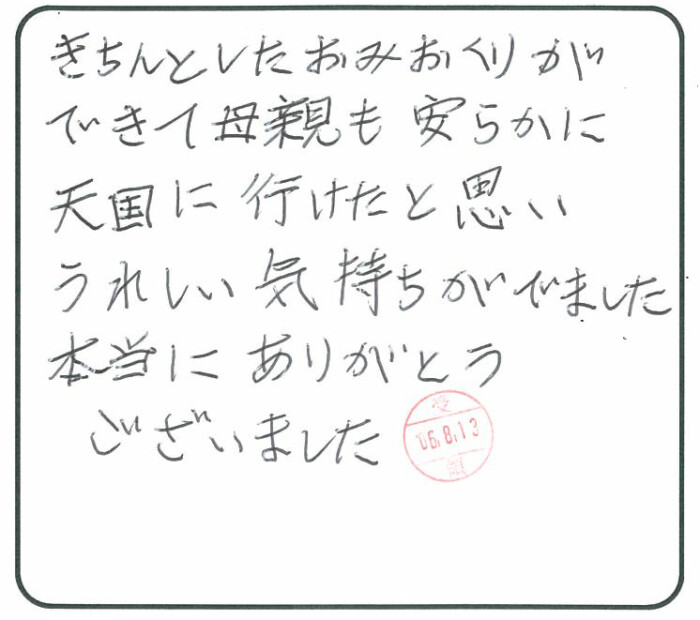 きちんとしたおみおくりが
できて母親も安らかに
天国に行けたと思い
うれしい気持ちがでました
本当にありがとう
ございました
受
06.8.13
領